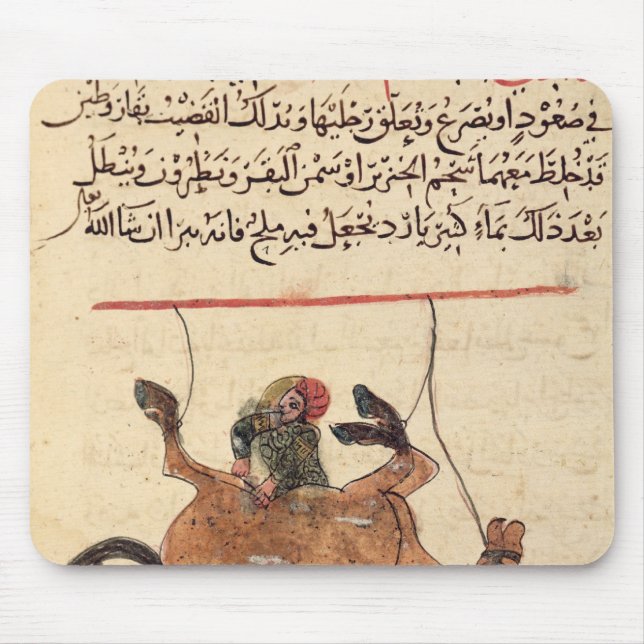 في صعود او يصرع وتعلق رجليها ويدلك القضيب بقار وطين
قد خلط معهما شحم الخنزير او سمن البقر ونطرون وينطل
بعد ذلك بماء كثير بارد يجعل فيه ملح فانه يبرا ان شا الله
تعلى